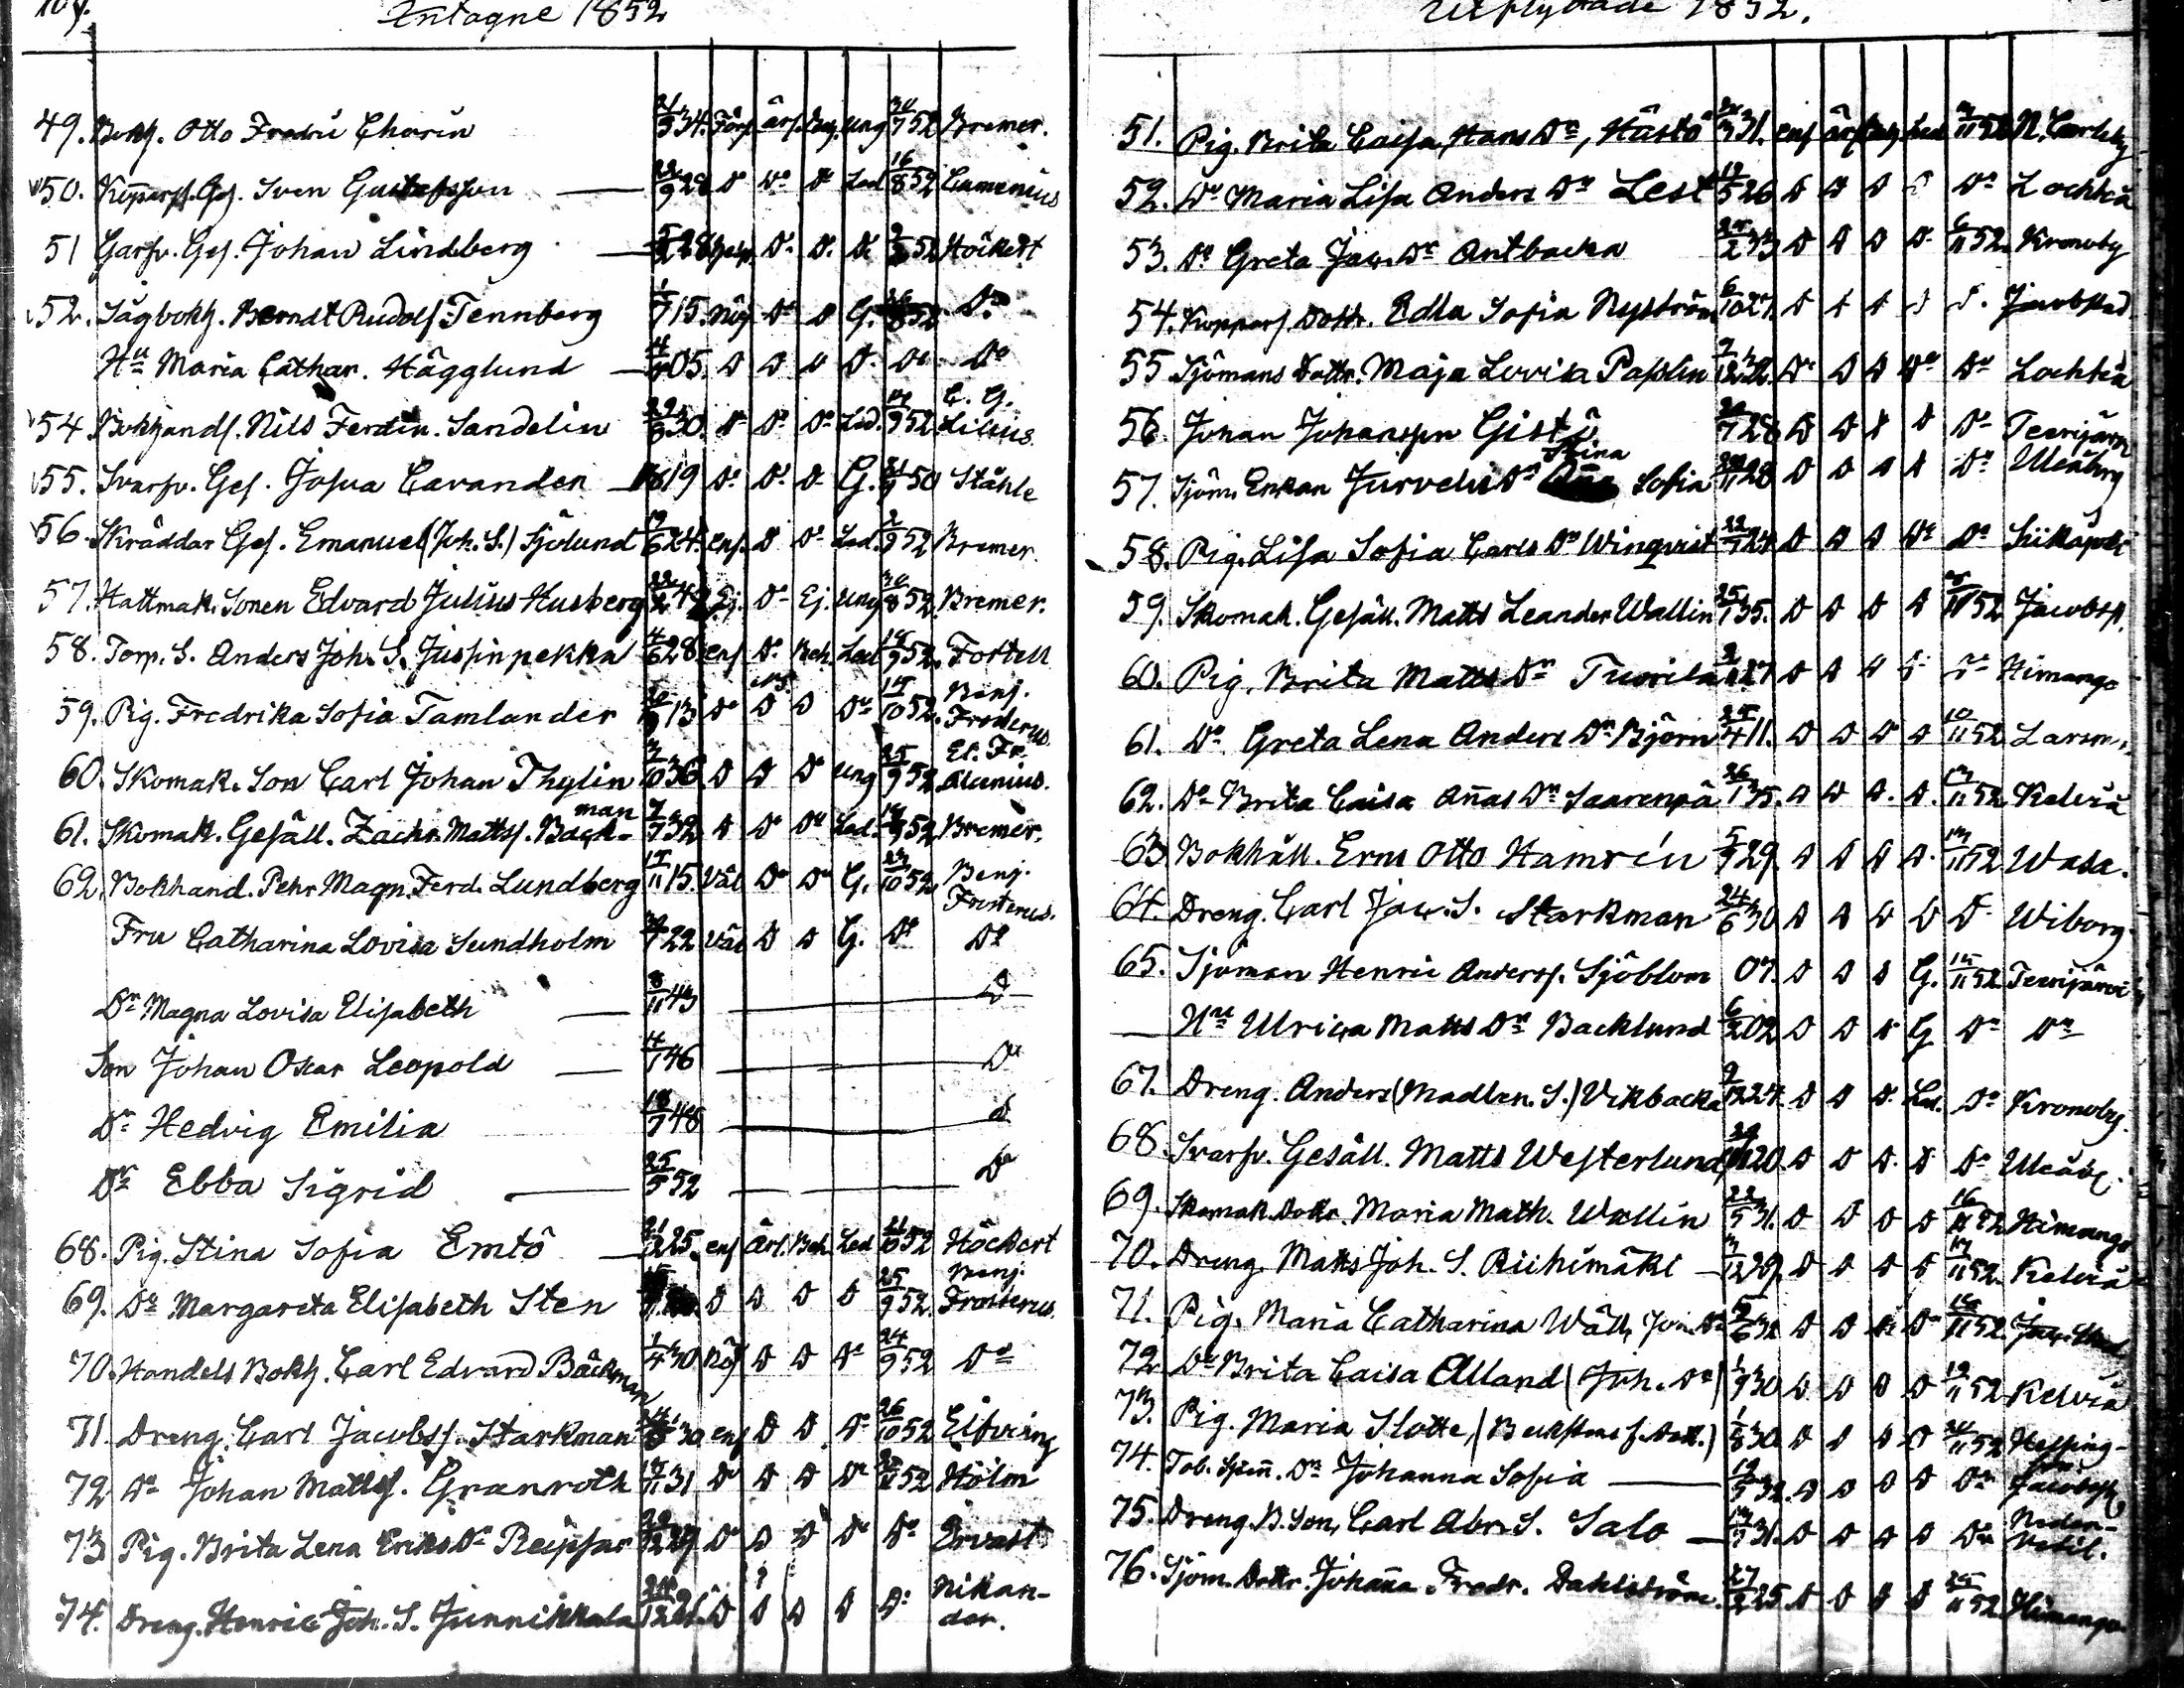 109.
Intagne 1852
49. Bokh. Otto Fredric Chorin 21/3 34. Förs. ärl. Beg. ung 30/7 52 Bremer.
50. Kopparsl. Ges. Sven Gustafsson 22/9 28 Do Do Do Led 16/8 52 Camenius
51 Garfv. Ges. Johan Lindberg Do Do Do 52 Höckert
52. Sågbokh. Berndt Rudolf Tennberg 1/7 15. Nöj. Do D G. 52 Do
Hu Maria Cathar. Hägglund 05. D D D D. Do Do
54 Bokhandl. Nils Ferdin. Sandelin 30. Do Do Do Led. 9 52 C. G. Lilius.
55. Svarfv. Ges. Josua Cavander 1819 Do Do D G. 50 Ståhle
56. Skräddar Ges. Emanuel (Joh. S.) Sjölund 6 24. enf. D Do Led. 2/9 52 Bremer.
57. Hattmak. Sonen Edvard Julius Husberg 22/2 42 Ej. Do Ej. ung 30/8 52. Bremer.
58. Torp. S. Anders Joh. S. Jussinpekka 4/6 28. enf Do Beh. Led 9 52. Fortell
59. Pig. Fredrika Sofia Tamlander 13 Do D D Do 10 52. Benj. Frosterus.
60. Skomak. Son Carl Johan Thylin 10 36 D D Do ung 25/9 52 El. Fr. Alcenius.
61. Skomak. Gesäll. Zachr. Mattss. Backman 7/7 32 D Do Do Led. 9 52 Bremer.
62. Bokhand. Pehr Magn. Ferd. Lundberg 11 15. Väl Do Do G. 10 52. Benj. Frosterus.
Fru Catharina Lovisa Sundholm 22 Väl D D G. Do Do
Dr Magna Lovisa Elisabeth 8/11 43 D
Son Johan Oscar Leopold 4/1 46 Do
Dr Hedvig Emilia 18/7 48 D
Dr Ebba Sigrid 25/5 52 Do
68. Pig. Stina Sofia Emtö 21/12 25. enf Ärl. Beh. Led 21/10 52 Höckert
69. Do Margareta Elisabeth Sten D D D D 25/9 52. Benj. Frosterus.
70. Handels Bokh. Carl Edvard Bäckman 1/4 30 Nöj D D Do 24/9 52 Do
71. Dreng. Carl Jacobss. Starkman 30 enf D D Do 26/10 52 Elfving
72 Do Johan Mattss. Granroth 11 31 Do D D Do 52 Holm
73 Pig. Brita Lena Eriks Dr Reipsar 12 29 Do D D Do Do Ervast
74. Dreng. Henric Joh. S. Junnikkala 12 21. D D D D Do Nikander.
Utflyttade 1852.
51. Pig. Brita Caisa, Hans Dr, Hästö 31. enf ärl Beh. Led 11 52 N. Carleby
52. Do Maria Lisa Anders Dr Lest 12/5 26 D D D D Do Lochteå
53. Do Greta Jac. Dr Antbacka 25/2 33 D D D D 6/11 52. Kronoby
54. Kopparsl. Dottr. Edla Sofia Nyström 6/10 27. D D D D Do Jacobstad
55 Sjömans Dottr. Maja Lovisa Passlin 12 32. Do D D Do Do Lochteå
56. Johan Johansson Gistö 7 28 D D D D Do Teerijärvi
57. Sjöm. Enkan Jurvelin Do Stina Sofia 11 28 D D D D Do Uleåborg
58. Pig. Lisa Sofia Carls Dr Winqvist 22/7 24 D D D Do Do Siikajoki
59. Skomak. Gesäll. Matts Leander Wallin 25/7 35. D D D D 11 52 Jacobst.
60. Pig. Brita Matts Dr Tuorila 27 D D D D Do Himango
61. Do Greta Lena Anders Dr Björn 4 11. D D D D 10/11 52 Larsm.
62. Do Brita Caisa Añas Dr Saarenpä 26/1 35. D D D. D. 13/11 52 Kelviå
63 Bokhåll. Erns Otto Hamrén 5/7 29. D D D D. 13/11 52 Wasa.
64. Dreng. Carl Jac. S. Starkman 24/6 30 D D D D D Wiborg.
65. Sjöman Henric Anderss. Sjöblom 07. D D D G. 15/11 52 Teerijärvi
— Hu Ulrica Matts Dr Backlund 6/2 02 D D D G Do Do
67. Dreng. Anders (Madlen. S.) Vikbacka 9/12 24. D D D. Led. Do Kronoby.
68. Svarfv. Gesäll. Matts Westerlund 20. D D D. D Do Uleåb.
69. Skomak. Dottr. Maria Math. Wallin 22/5 31. D D D D 16/11 52 Himango
70. Dreng. Matts Joh. S. Riihimäki 12 29. D D D D 17/11 52. Kelviå
71. Pig. Maria Catharina Wäll, Joh. Dr 6 32 D D D Do 11 52.
72 Do Brita Caisa Alland (Joh. Dr) 1/9 30 D D D D 19/11 52 Kelviå
73. Pig. Maria Slotte, 1/8 30. D D D D 11 52 Helsingfors
74. Tob. Spinn. Dr Johanna Sofia 19/5 32. D D D D Do Jacobst.
75. Dreng. B. Son, Carl Abr. S. Salo 13/7 31. D D D D Do Neder-Vetil.
76. Sjöm. Dottr. Johaña Fredr. Dahlström. 27/2 25. D D D D 11 52 Himango